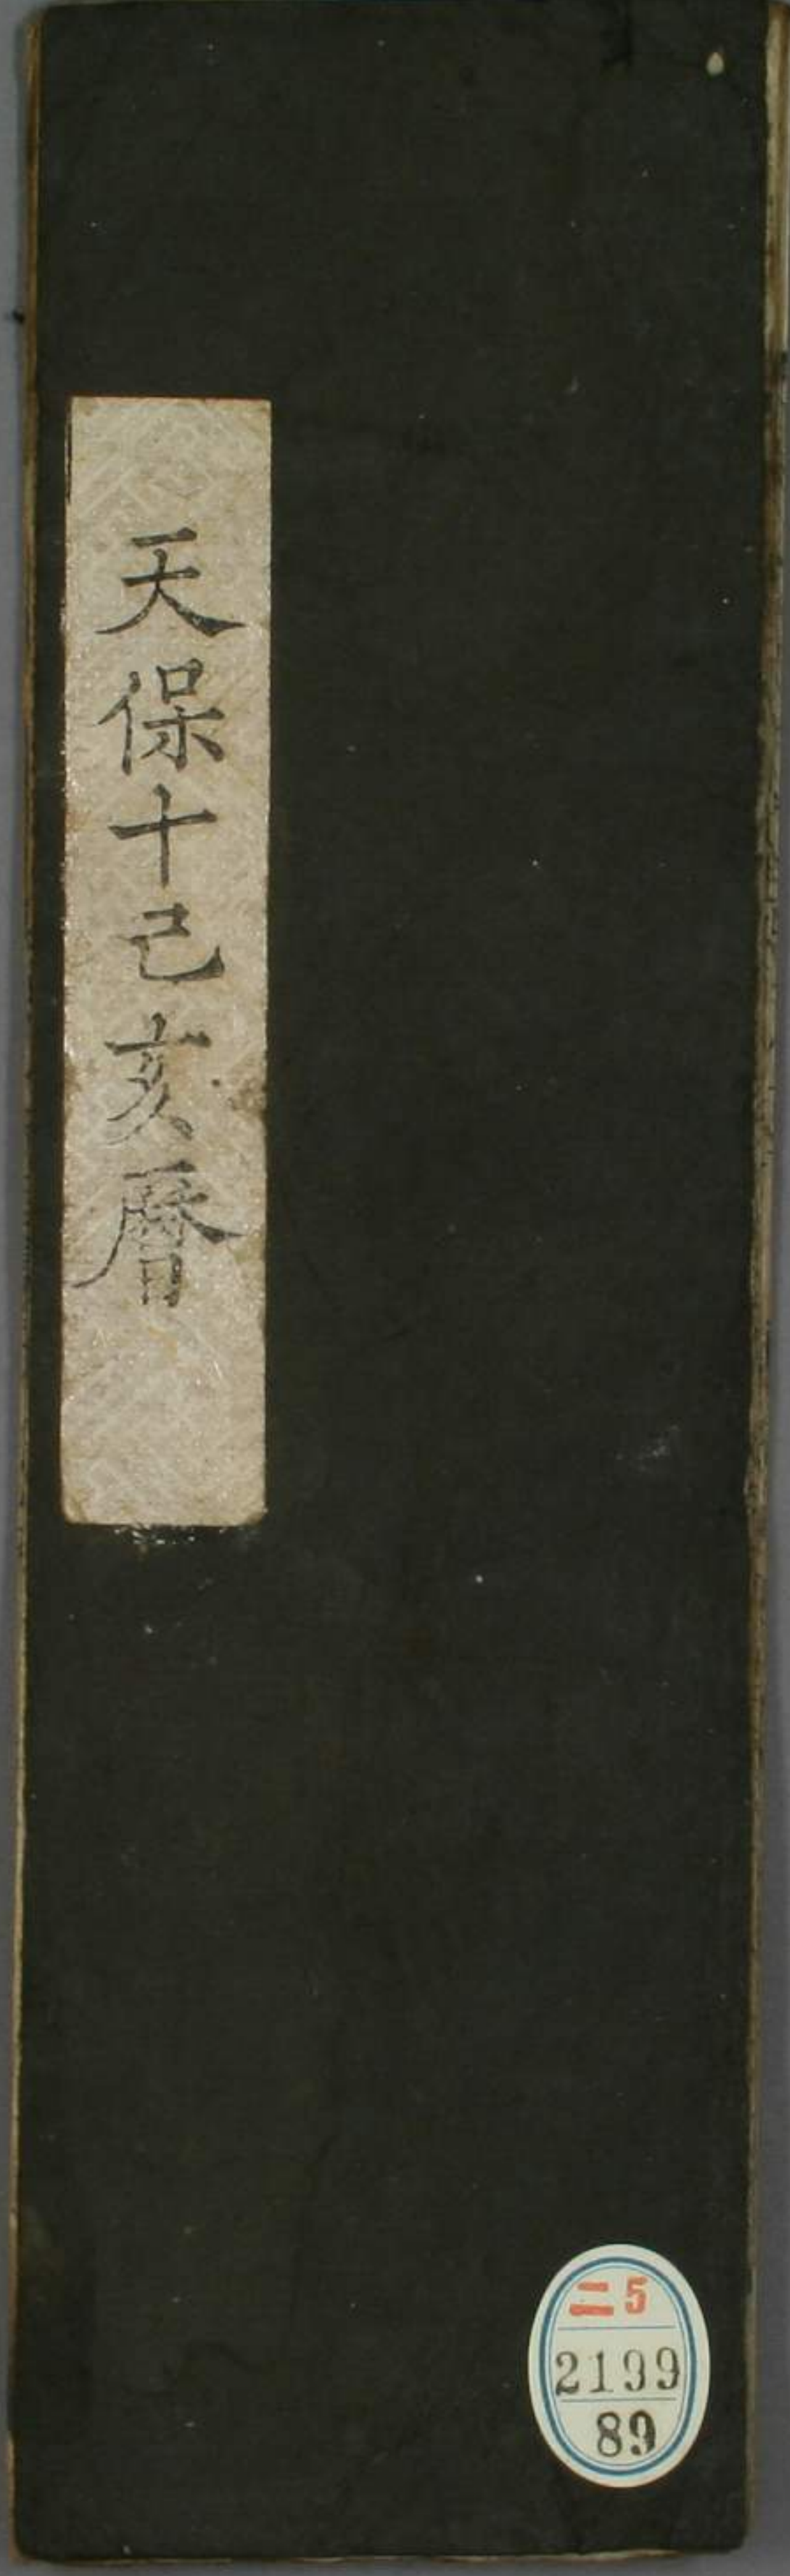 天保十己亥暦
二5
2199
89